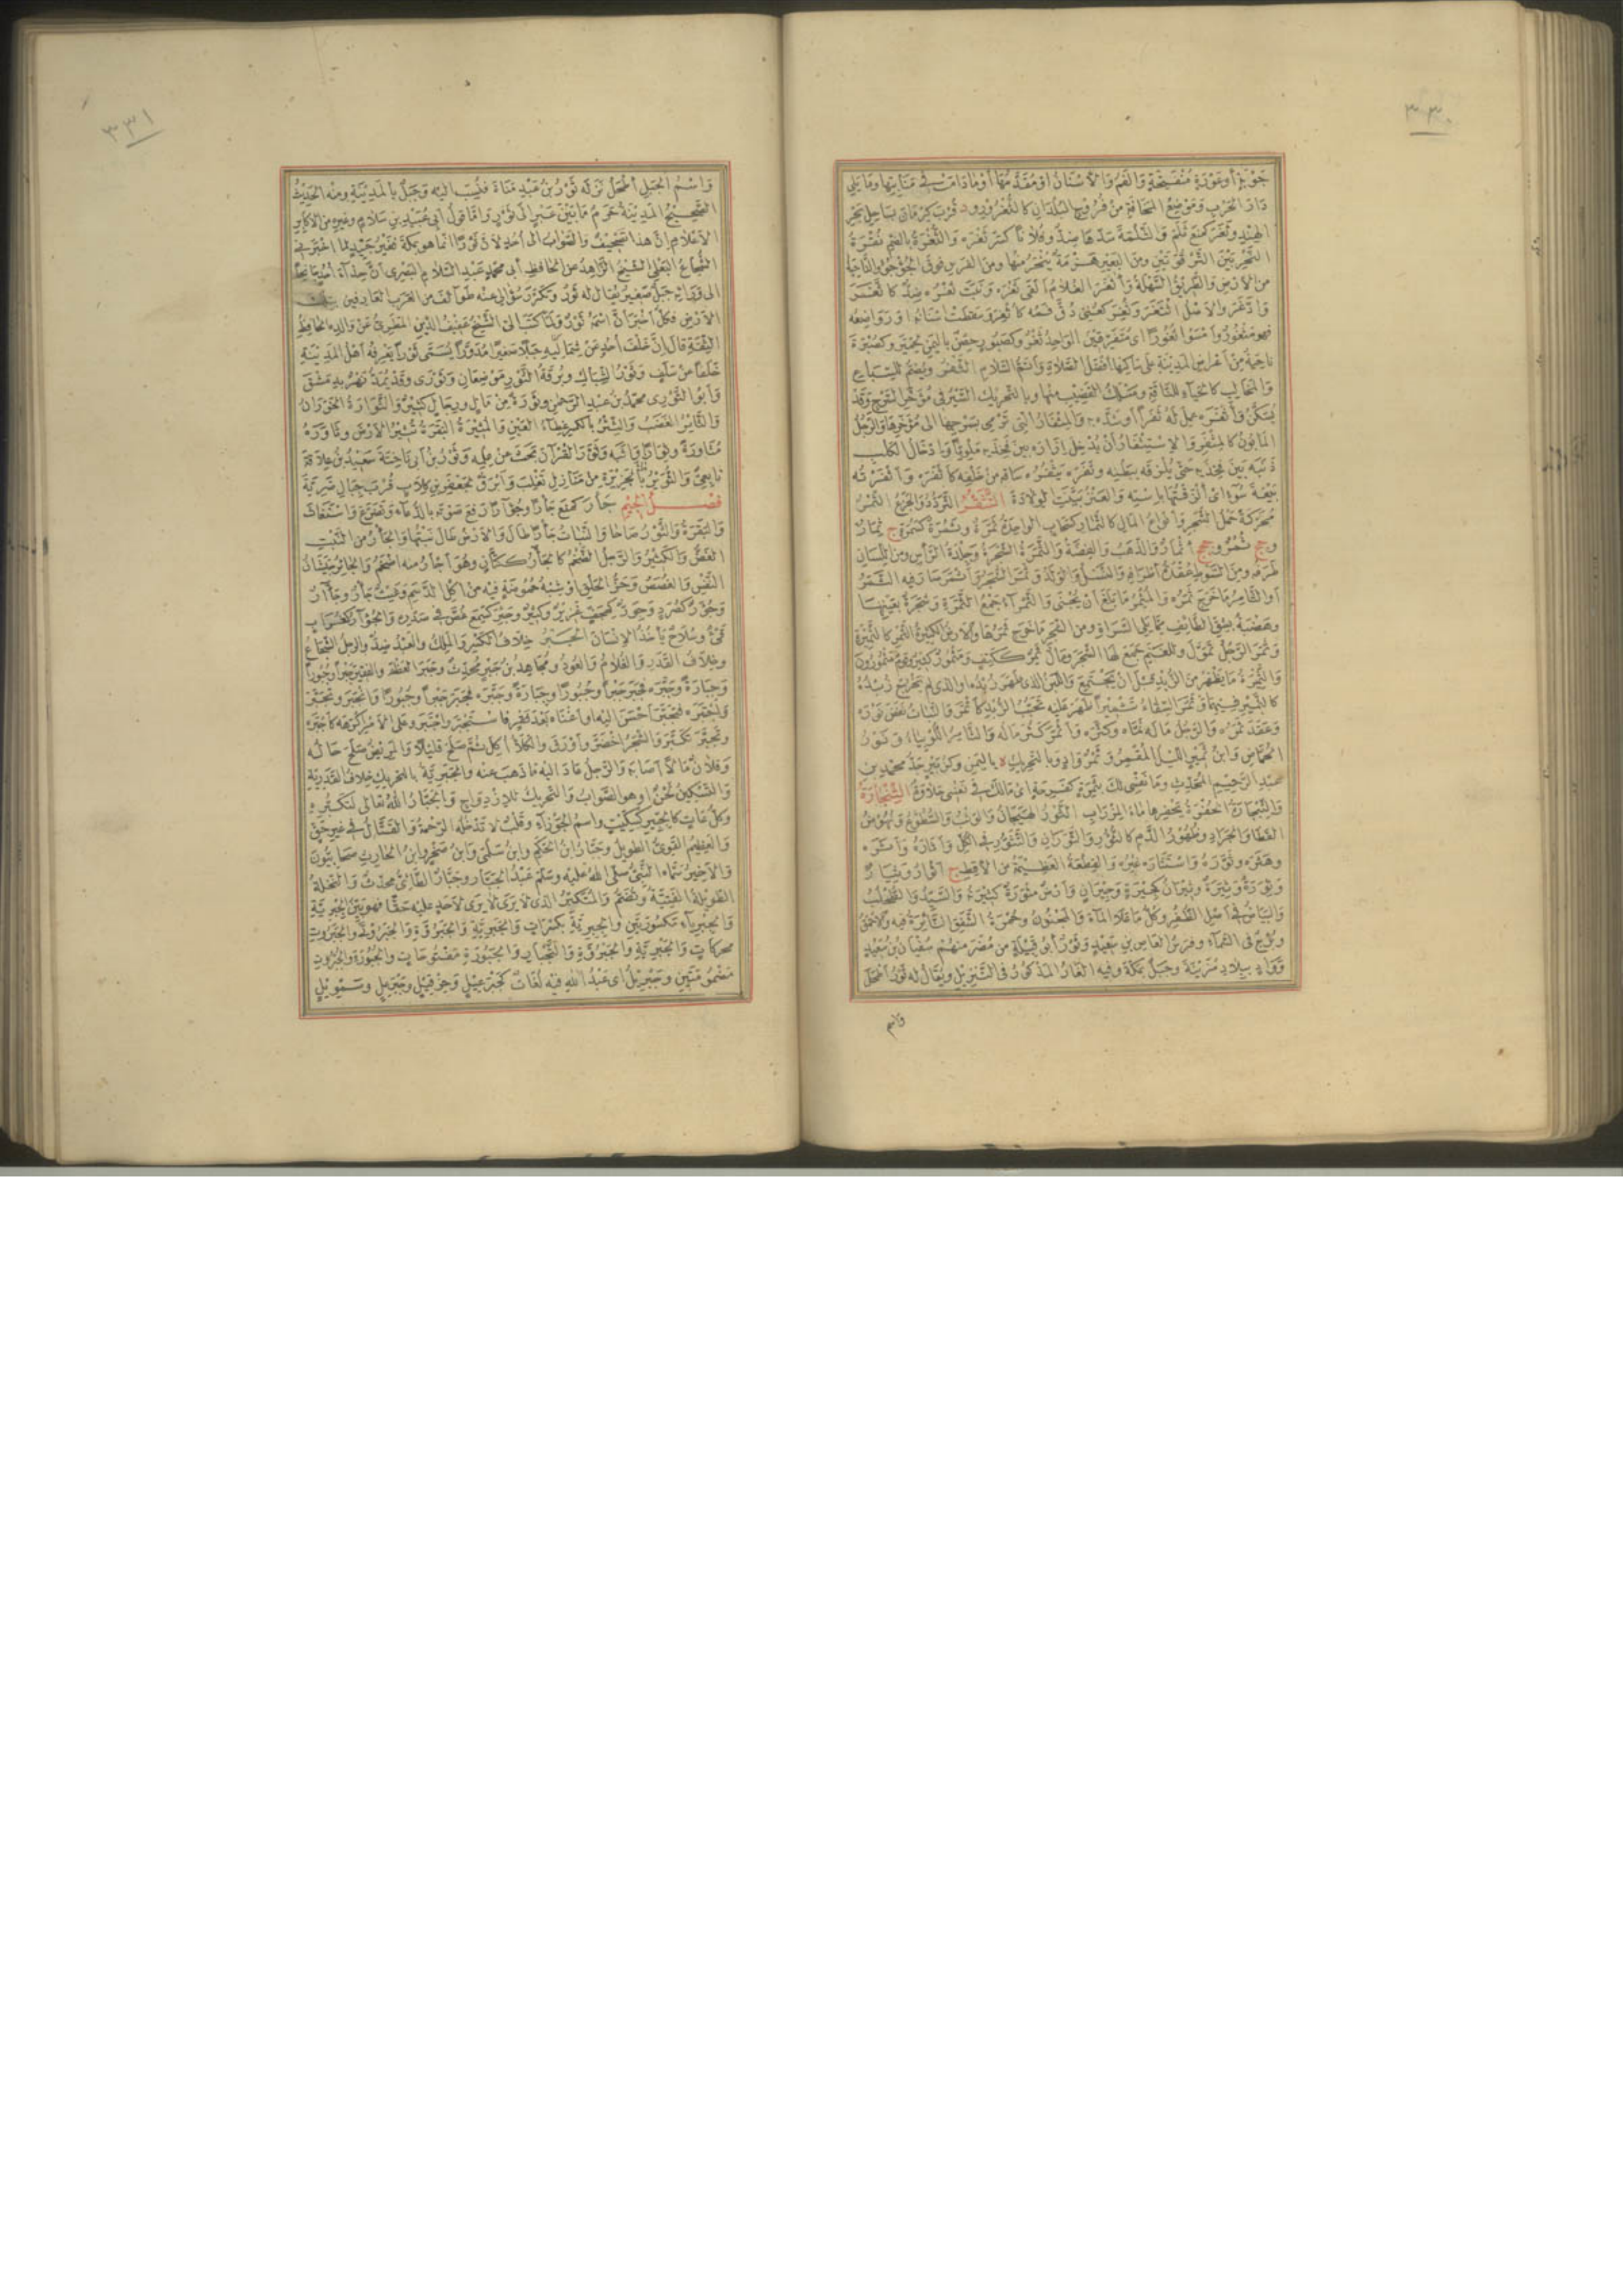 ٣٣٠
جَوْبَةٍ أو عَوْرَةٍ مُنْفَتِحَةٍ والفَمُ والأسْنانُ أو مُقَدَّمُها أو ما دامَتْ في مَنابِتِها وما يَلِي
دارَ الحَرْبِ ومَوْضِعُ المَخافَةِ من فُرُوجِ البُلْدانِ كالثُّغْرورِ ود قُرْبَ كِرْمانَ بساحِلِ بَحْرِ
الهِنْدِ وثَغَرَ كمَنَعَ ثَلَمَ والثُّلْمَةَ سَدَّها ضِدٌّ وفُلاناً كَسَرَ ثَغْرَهُ والثُّغْرَةُ بالضم نُقْرَةُ
النَّحْرِ بين التَّرْقُوَتَيْنِ ومن البَعِيرِ هَزْمَةٌ يُنْحَرُ منها ومن الفَرَسِ فوقَ الجُؤْجُؤِ والناحِيَةُ
من الأرضِ والطَّريقُ السَّهْلَةُ وأثْغَرَ الغُلامُ ألْقَى ثَغْرَهُ ونَبَتَ ثَغْرُهُ ضِدٌّ كاثَّغَرَ
وادَّغَرَ والأصْلُ اثْتَغَرَ وثُغِرَ كعُنِيَ دُقَّ فَمُهُ كأُثْغِرَ وسَقَطَتْ أسْنانُهُ أو رَواضِعُهُ
فهو مَثْغُورٌ وأمْسَوْا ثُغُوراً أي مُتَفَرِّقِينَ الواحِدُ ثَغْرٌ وكصَبُورٍ حِصْنٌ باليمن لحِمْيَرَ وكصُبْرَةٍ
ناحِيَةٌ من أعْراضِ المدينةِ على ساكِنِها أفضلُ الصلاةِ وأتمُّ السلامِ الثَّفْرُ ويُضَمُّ للسِّباعِ
والمَخالِبِ كالحَياءِ للناقَةِ ومَسْلَكُ القَضِيبِ منها وبالتحريك السَّيْرُ في مُؤَخَّرِ السَّرْجِ وقد
يُسَكَّنُ وأثْفَرَهُ عَمِلَ له ثَفَراً أو شَدَّهُ به والمِثْفارُ التي تَرْمِي بسَرْجِها إلى مُؤَخَّرِها والرَّجُلُ
المَأْبُونُ كالمِثْفَرِ والاسْتِثْفارُ أن يُدْخِلَ إزارَهُ بين فَخِذَيْهِ مَلْوِيّاً وإدْخالُ الكَلْبِ
ذَنَبَهُ بين فَخِذَيْهِ حتى يُلْزِقَهُ ببَطْنِهِ وثَفَرَهُ يَثْفِرُهُ ساقَهُ من خَلْفِهِ كأثْفَرَهُ وأثْفَرْتُهُ
بَيْعَةَ سَوْءٍ أي ألْزَقْتُها باسْتِهِ والعَنْزُ بَيَّنَتِ الوِلادَةَ التَّثَقُّرُ التَّرَدُّدُ والجَزَعُ الثَّمَرُ
محرَّكةً حَمْلُ الشَّجَرِ وأنْواعُ المالِ كالثَّمارِ كسَحابٍ الواحِدَةُ ثَمَرَةٌ وثَمُرَةٌ كسَمُرَةٍ ج ثِمارٌ
وجج ثُمُرٌ وججج أثْمارٌ والذَّهَبُ والفِضَّةُ والثَّمَرَةُ الشَّجَرَةُ وجِلْدَةُ الرأسِ ومن اللِّسانِ
طَرَفُهُ ومن السَّوْطِ عُقْدَةُ أطْرافِهِ والنَّسْلُ والوَلَدُ وثَمَرَ الشَّجَرُ وأثْمَرَ صارَ فيه الثَّمَرُ
أو الثَّامِرُ ما خَرَجَ ثَمَرُهُ والمُثْمِرُ ما بَلَغَ أن يُجْنَى والثَّمْراءُ جَمْعُ الثَّمَرَةِ وشَجَرَةٌ بعَيْنِها
وهَضْبَةٌ بشِقِّ الطائِفِ مما يَلِي السَّراةَ ومن الشَّجَرِ ما خَرَجَ ثَمَرُها والأرضُ الكَثِيرَةُ الثَّمَرِ كالثَّمِرَةِ
وثَمَرَ الرَّجُلُ تَمَوَّلَ وللغَنَمِ جَمَعَ لها الشَّجَرَ ومالٌ ثَمِرٌ ككَتِفٍ ومَثْمُورٌ كَثِيرٌ وقومٌ مَثْمُورُونَ
والثَّمِيرَةُ ما يَظْهَرُ من الزُّبْدِ قبلَ أن يَجْتَمِعَ واللَّبَنُ الذي ظَهَرَ زُبْدُهُ أو الذي لم يَخْرُجْ زُبْدُهُ
كالثَّمِيرِ فيهما وثَمَّرَ السِّقاءُ تَثْمِيراً ظَهَرَ عليه تَحَبُّبُ الزُّبْدِ كأثْمَرَ والنَّباتُ نَفَضَ نَوْرَهُ
وعَقَدَ ثَمَرُهُ والرَّجُلُ مالَهُ نَمَّاهُ وكَثَّرَهُ وأثْمَرَ كَثُرَ مالُهُ والثَّامِرُ اللُّوبِياءُ ونَوْرُ
الحُمَّاضِ وابنُ ثَمِيرٍ اللَّيْلُ المُقْمِرُ وثَمْرٌ وادٍ وبالتحريك ة باليمن وكزُبَيْرٍ جَدُّ محمدِ بنِ
عبدِ الرحيمِ المحدِّثِ وما نَفْسِي لك بثَمِرَةٍ كفَرِحَةٍ أي ما لَكَ في نَفْسِي حَلاوَةٌ الثَّنْجارَةُ
والثِّبْجارَةُ الحُفْرَةُ يَحْفِرُها ماءُ المِزْرابِ الثَّوْرُ الهَيَجانُ والوَثْبُ والسُّطُوعُ ونُهُوضُ
القَطا والجَرادِ وظُهُورُ الدَّمِ كالثُّؤُورِ والثَّوَرانِ والتَّثَوُّرِ في الكُلِّ وأثارَهُ وأثَرَهُ
وهَثَرَهُ وثَوَّرَهُ واسْتَثارَهُ غيرُهُ والقِطْعَةُ العَظِيمَةُ من الأقِطِ ج أثْوارٌ وثِيارٌ
وثِوَرَةٌ وثِيَرَةٌ وثِيرانٌ كجِيرَةٍ وجِيرانٍ وأرضٌ مَثْوَرَةٌ كَثِيرَتُهُ والسَّيِّدُ والطُّحْلُبُ
والبَياضُ في أصلِ الظُّفُرِ وكُلُّ ما عَلا الماءَ والمَجْنُونُ وحُمْرَةُ الشَّفَقِ الثَّائِرَةُ فيه والأحْمَقُ
وبُرْجٌ في السماءِ وفَرَسُ العاصِ بنِ سَعِيدٍ وثَوْرٌ أبو قَبِيلَةٍ من مُضَرَ منهم سُفْيانُ بنُ سَعِيدٍ
ووادٍ ببِلادِ مُزَيْنَةَ وجَبَلٌ بمكةَ وفيه الغارُ المذكورُ في التَّنْزِيلِ ويقالُ له ثَوْرُ أطْحَلَ
واسم
٣٣١
واسْمُ الجَبَلِ أطْحَلُ نَزَلَهُ ثَوْرُ بنُ عَبْدِ مَناةَ فنُسِبَ إليه وجَبَلٌ بالمدينةِ ومنه الحديثُ
الصحيحُ المدينةُ حَرَمٌ ما بين عَيْرٍ إلى ثَوْرٍ وأما قولُ أبي عُبَيْدِ بنِ سَلامٍ وغيرِهِ من الأكابِرِ
الأعْلامِ إنَّ هذا تَصْحِيفٌ والصَّوابُ إلى أُحُدٍ لأنَّ ثَوْراً إنما هو بمكةَ فغَيْرُ جَيِّدٍ لما أخْبَرَني
الشُّجاعُ البَعْلِيُّ الشيخُ الزاهِدُ عن الحافِظِ أبي محمدٍ عبدِ السلامِ البَصْرِيِّ أنَّ حِذاءَ أُحُدٍ جانِحاً
إلى ورائِهِ جَبَلٌ صَغِيرٌ يقالُ له ثَوْرٌ وتَكَرَّرَ سُؤالي عنه طَوائِفَ من العَرَبِ العارِفِينَ بتلك
الأرضِ فكُلٌّ أخْبَرَ أنَّ اسْمَهُ ثَوْرٌ ولما كَتَبَ إليَّ الشيخُ عَفِيفُ الدينِ المَطَرِيُّ عن والدِهِ الحافِظِ
الثِّقَةِ قال إنَّ خَلْفَ أُحُدٍ عن شِمالِيِّهِ جَبَلاً صَغِيراً مُدَوَّراً يُسَمَّى ثَوْراً يَعْرِفُهُ أهلُ المدينةِ
خَلَفاً عن سَلَفٍ وثَوْرُ الشِّباكِ وبُرْقَةُ الثَّوْرِ مَوْضِعانِ وثَوْرَى وقد يُمَدُّ نَهْرٌ بدِمَشْقَ
وأبو الثَّوْرَيْنِ محمدُ بنُ عبدِ الرحمنِ وثَوْرَةٌ من مالٍ ورِجالٍ كَثِيرٌ والثَّوَّارَةُ الخَوْرانُ
والثَّائِرُ الغَضَبُ والثِّيرُ بالكسر غِطاءُ العَيْنِ والمُثِيرَةُ البَقَرَةُ تُثِيرُ الأرضَ وثاوَرَهُ
مُثاوَرَةً وثِواراً واثَبَهُ وثَوَّرَ القرآنَ بَحَثَ عن عِلْمِهِ وثُوَيْرُ بنُ أبي فاخِتَةَ سَعِيدِ بنِ عِلاقَةَ
تابِعِيٌّ والثُّوَيْرُ ماءٌ بالجَزِيرَةِ من مَنازِلِ تَغْلِبَ وأبْرَقٌ لجَعْفَرِ بنِ كِلابٍ قُرْبَ جِبالِ ضَرِيَّةَ
فصل الجيم جَأَرَ كمَنَعَ جَأْراً وجُؤاراً رَفَعَ صَوْتَهُ بالدُّعاءِ وتَضَرَّعَ واسْتَغاثَ
والبَقَرَةُ والثَّوْرُ صاحا والنَّباتُ جَأْراً طالَ والأرضُ طالَ نَبْتُها والجَأْرُ من النَّبْتِ
الغَضُّ والكَثِيرُ والرَّجُلُ الضَّخْمُ كالجَأَّرِ ككَتَّانٍ وهو أجْأَرُ منه أضْخَمُ والجائِرُ جَيَشانُ
النَّفْسِ والغَصَصُ وحَرُّ الحَلْقِ أو شِبْهُ حُمُوضَةٍ فيه من أكْلِ الدَّسَمِ وغَيْثٌ جَأْرٌ وجَأَّرٌ
وجُؤَرٌ كصُرَدٍ وجِوَرٌّ كهِجَفٍّ غَزِيرٌ وكَثِيرٌ وجَئِرَ كسَمِعَ غَصَّ في صَدْرِهِ والجُؤارُ كغُرابٍ
قَيْءٌ وسُلاحٌ يأخُذُ الإنسانَ الجَبْرُ خِلافُ الكَسْرِ والمَلِكُ والعَبْدُ ضِدٌّ والرَّجُلُ الشُّجاعُ
وخِلافُ القَدَرِ والغُلامُ والعُودُ ومُجاهِدُ بنُ جَبْرٍ مُحَدِّثٌ وجَبَرَ العَظْمَ والفَقِيرَ جَبْراً وجُبُوراً
وجِبارَةً وجَبَّرَهُ فجَبَرَ جَبْراً وجُبُوراً وجِبارَةً وجَبَّرَهُ تَجْبِيراً وجُبُوراً وانْجَبَرَ وتَجَبَّرَ
واجْتَبَرَهُ فتَجَبَّرَ أحْسَنَ إليه أو أغْناهُ بعدَ فَقْرٍ فاسْتَجْبَرَ واجْتَبَرَ وعلى الأمرِ أكْرَهَهُ كأجْبَرَهُ
وتَجَبَّرَ تَكَبَّرَ والشَّجَرُ اخْضَرَّ وأوْرَقَ والكَلأُ أُكِلَ ثم صَلَحَ قليلاً والمَرِيضُ صَلَحَ حالُهُ
وفلانٌ مالاً أصابَهُ والرَّجُلُ عادَ إليه ما ذَهَبَ عنه والجَبَرِيَّةُ بالتحريك خِلافُ القَدَرِيَّةِ
والتَّسْكِينُ لَحْنٌ أو هو الصَّوابُ والتحريكُ للازْدِواجِ والجَبَّارُ اللهُ تعالى لتَكَبُّرِهِ
وكُلُّ عاتٍ كالجِبِّيرِ كسِكِّيتٍ واسْمُ الجَوْزاءِ وقَلْبٌ لا تَدْخُلُهُ الرَّحْمَةُ والقَتَّالُ في غيرِ حَقٍّ
والعَظِيمُ القَوِيُّ الطَّويلُ وجَبَّارُ ابنُ الحَكَمِ وابنُ سَلْمَى وابنُ صَخْرٍ وابنُ الحارِثِ صَحابِيُّونَ
والأخِيرُ سَمَّاهُ النبيُّ صلى الله عليه وسلم عبدَ الجَبَّارِ وجَبَّارٌ الطائِيُّ مُحَدِّثٌ والنَّخْلَةُ
الطَّويلَةُ الفَتِيَّةُ وتُضَمُّ والمُتَكَبِّرُ الذي لا يَرَى لأحَدٍ عليه حَقّاً فهو بَيِّنُ الجِبْرِيَّةِ
والجِبْرِياءِ مَكْسُورَتَيْنِ والجِبِرِيَّةِ بكَسَراتٍ والجَبَرِيَّةِ والجَبَرُوَّةِ والجَبَرُوتَى والجَبَرُوتِ
محرَّكاتٍ والجَبْرِيَّةِ والجَبْرُوَّةِ والتَّجْبارِ والجَبُّورَةِ مَفْتُوحاتٍ والجُبُّورَةِ والجُبْرُوتِ
مَضْمُومَتَيْنِ وجِبْرِيلُ أي عَبْدُ اللهِ فيه لُغاتٌ كجَبْرَعِيلَ وحِزْقِيلَ وجَبْرَعِلَ وسَمْوِيلَ